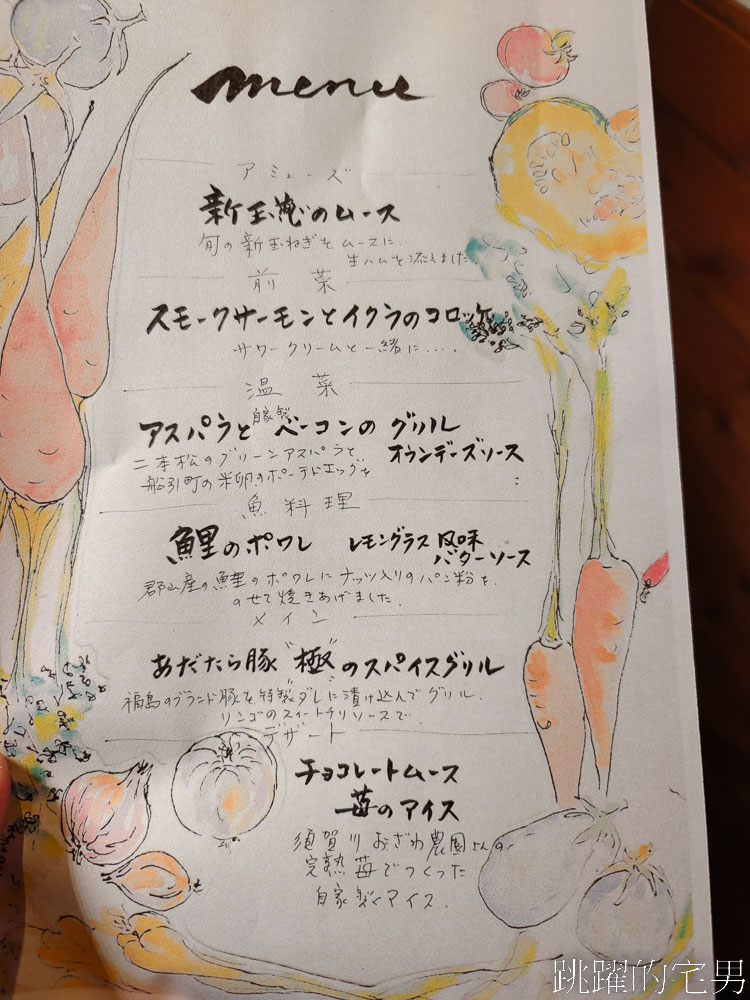 menu
アミューズ
新玉葱のムース
旬の新玉ねぎをムースに
生ハムを添えました
前菜
スモークサーモンとイクラのコロッケ
サワークリームと一緒に....
温菜
自家製
アスパラとベーコンのグリル
オランデーズソース
二本松のグリーンアスパラと
船引町の米卵のポーチドエッグを
:
魚料理
鯉のポワレ レモングラス風味
バターソース
郡山産の鯉のポワレにナッツ入りのパン粉を
のせて焼きあげました.
メイン
あだたら豚"極"のスパイスグリル
福島のブランド豚を特製ダレに漬け込んでグリル.
リンゴのスイートチリソースで.
デザート
チョコレートムース
苺のアイス
須賀川おざわ農園さんの
完熟苺でつくった
自家製アイス.
跳躍的宅男